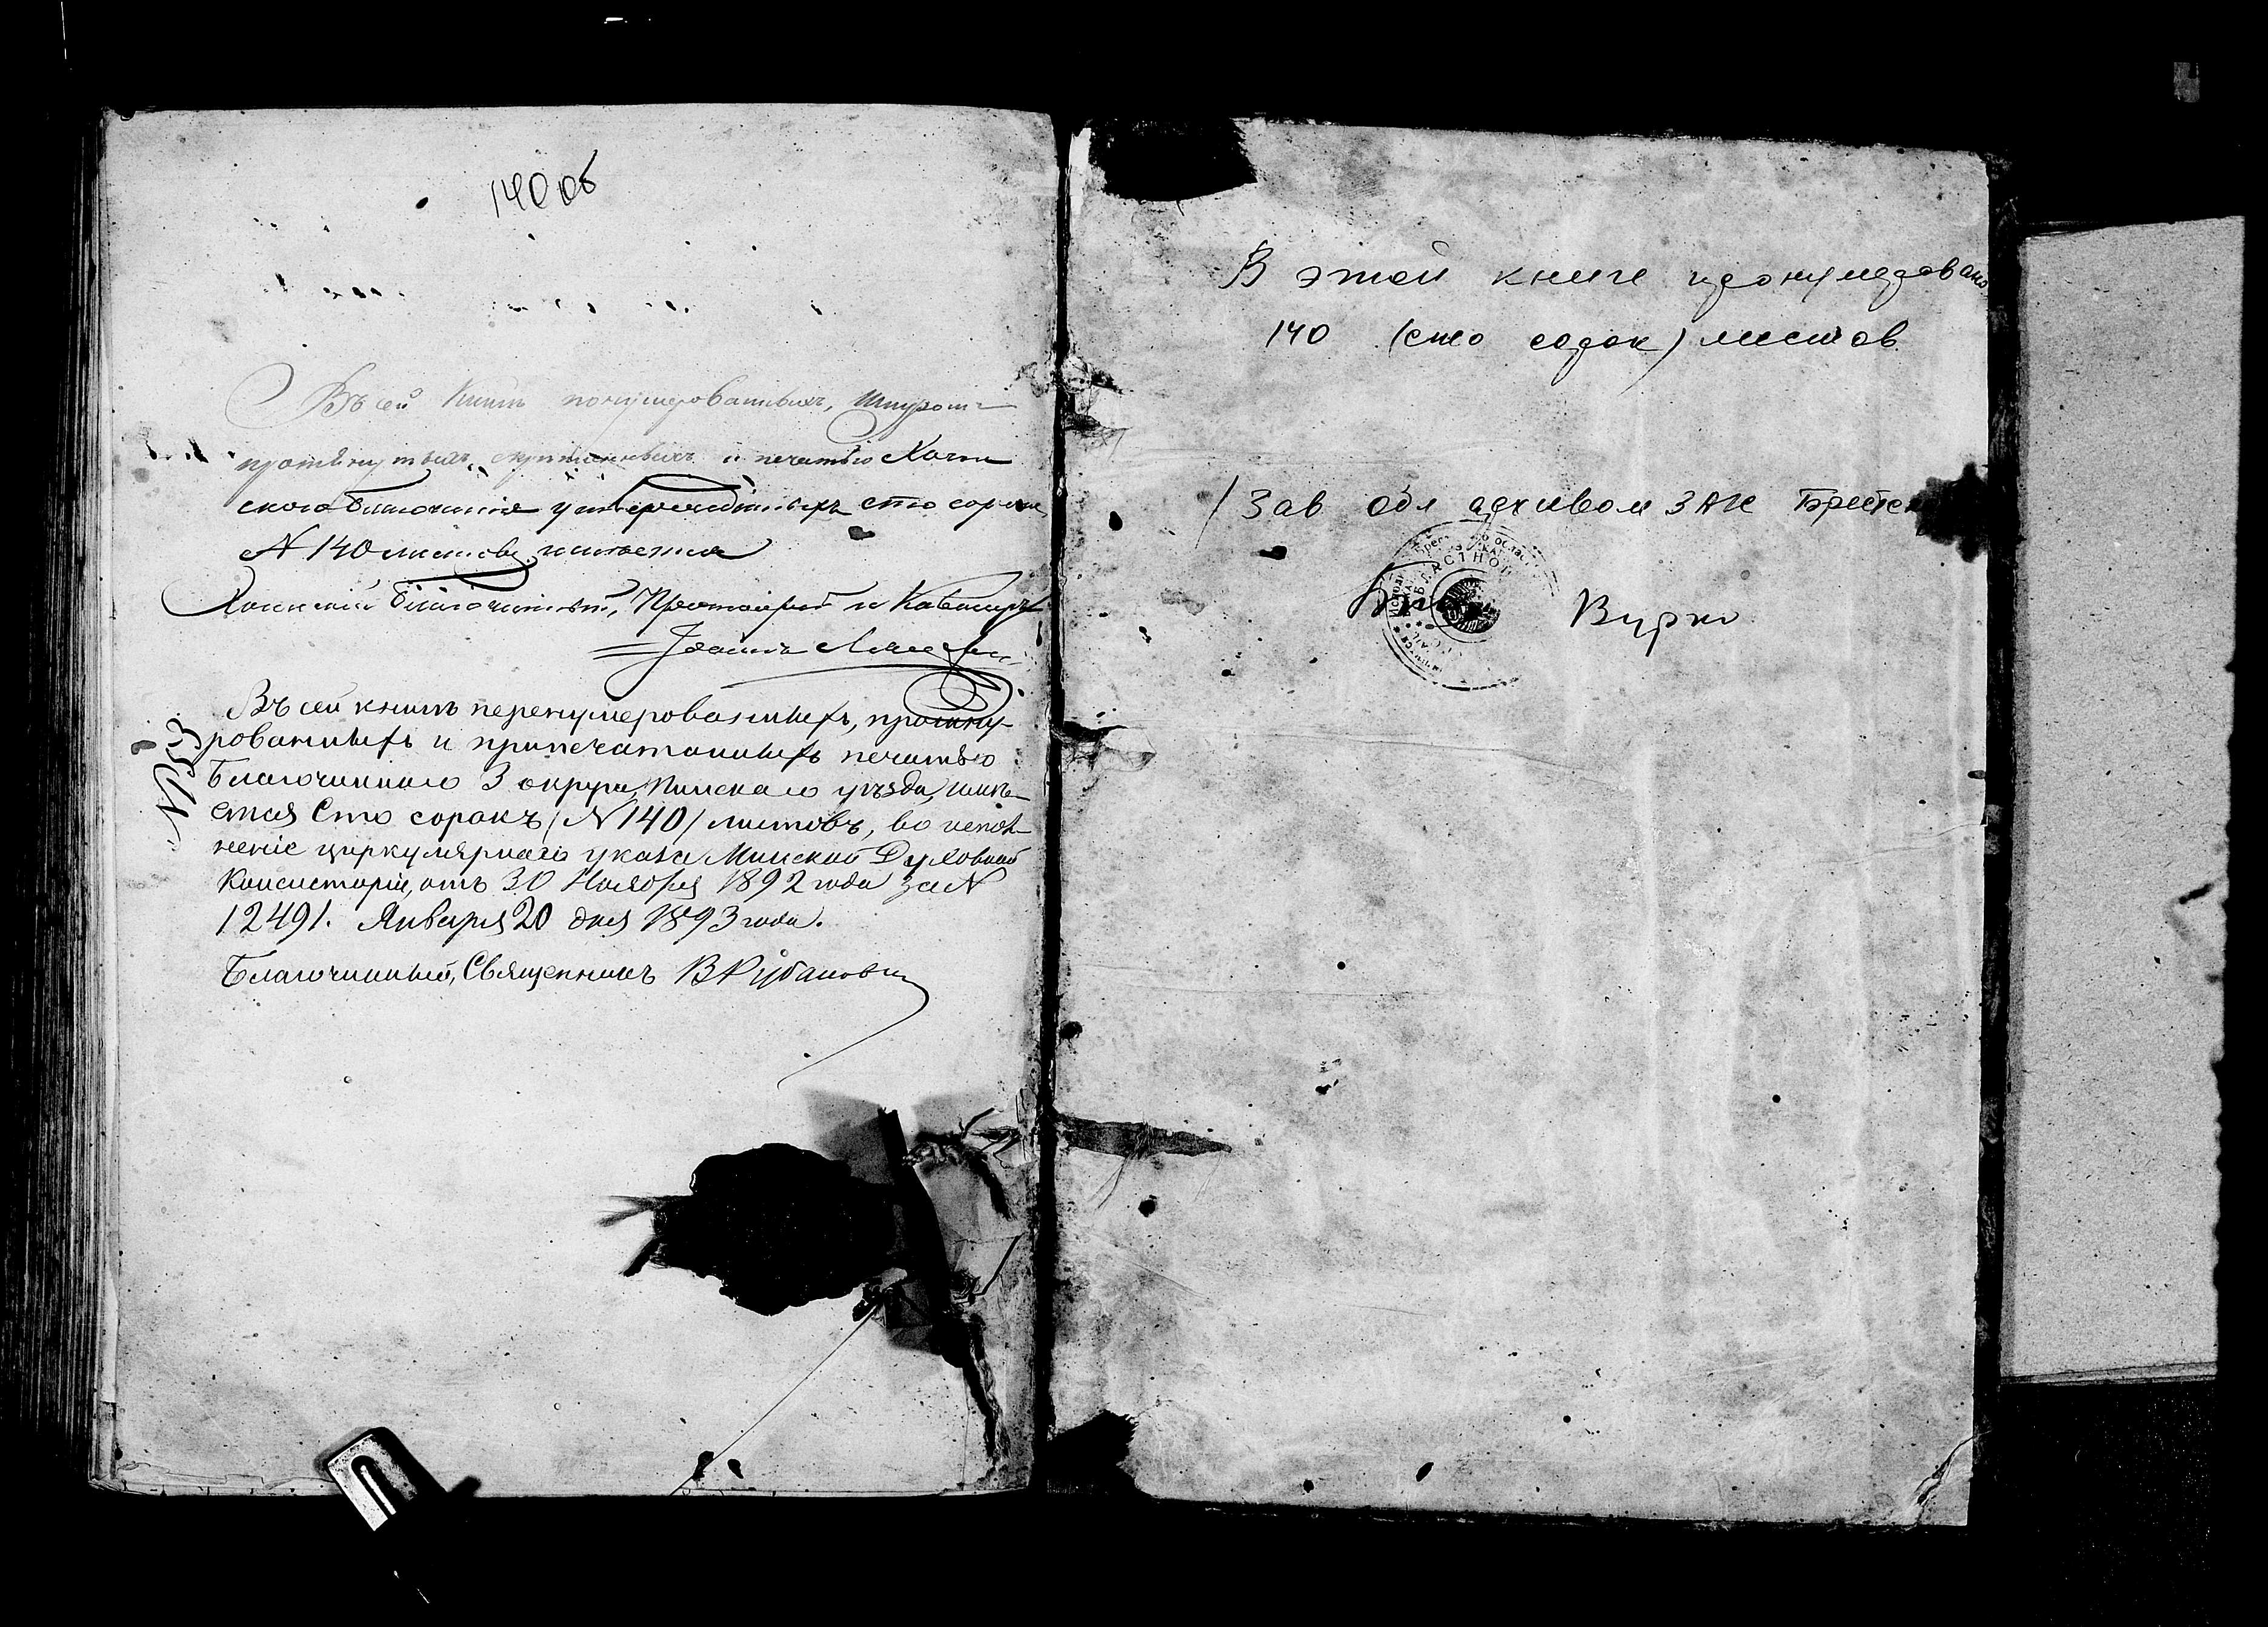 140 об
Въ сей Книгѣ понумерованныхъ, шнуромъ
протянутыхъ, скрѣпленныхъ и печатью
скаго Благочинія утвержденныхъ сто сорокъ
N 140 листовъ имѣется
Благочинный, Протоіерей и Кавалеръ
Іоаннъ
Въ сей книгѣ перенумерованныхъ, прошну-
рованныхъ и припечатанныхъ печатью
Благочиннаго 3 округа, Пинскаго уѣзда, имѣ-
ется Сто сорокъ (N 140) листовъ, во испол-
неніе циркулярнаго указа Минской Духовной
Консисторіи, отъ 30 Ноября 1892 года за N
12491. Января 20 дня 1893 года.
Благочинный, Священникъ В Рубановичъ
N 33
В этой книге пронумеровано
140 (сто сорок) листов
Зав обл архивом ЗАГС Брестск
ОБЛАСТНОЙ
Бурко